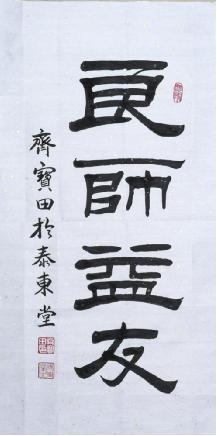 良師益友
齊寶田於泰東堂